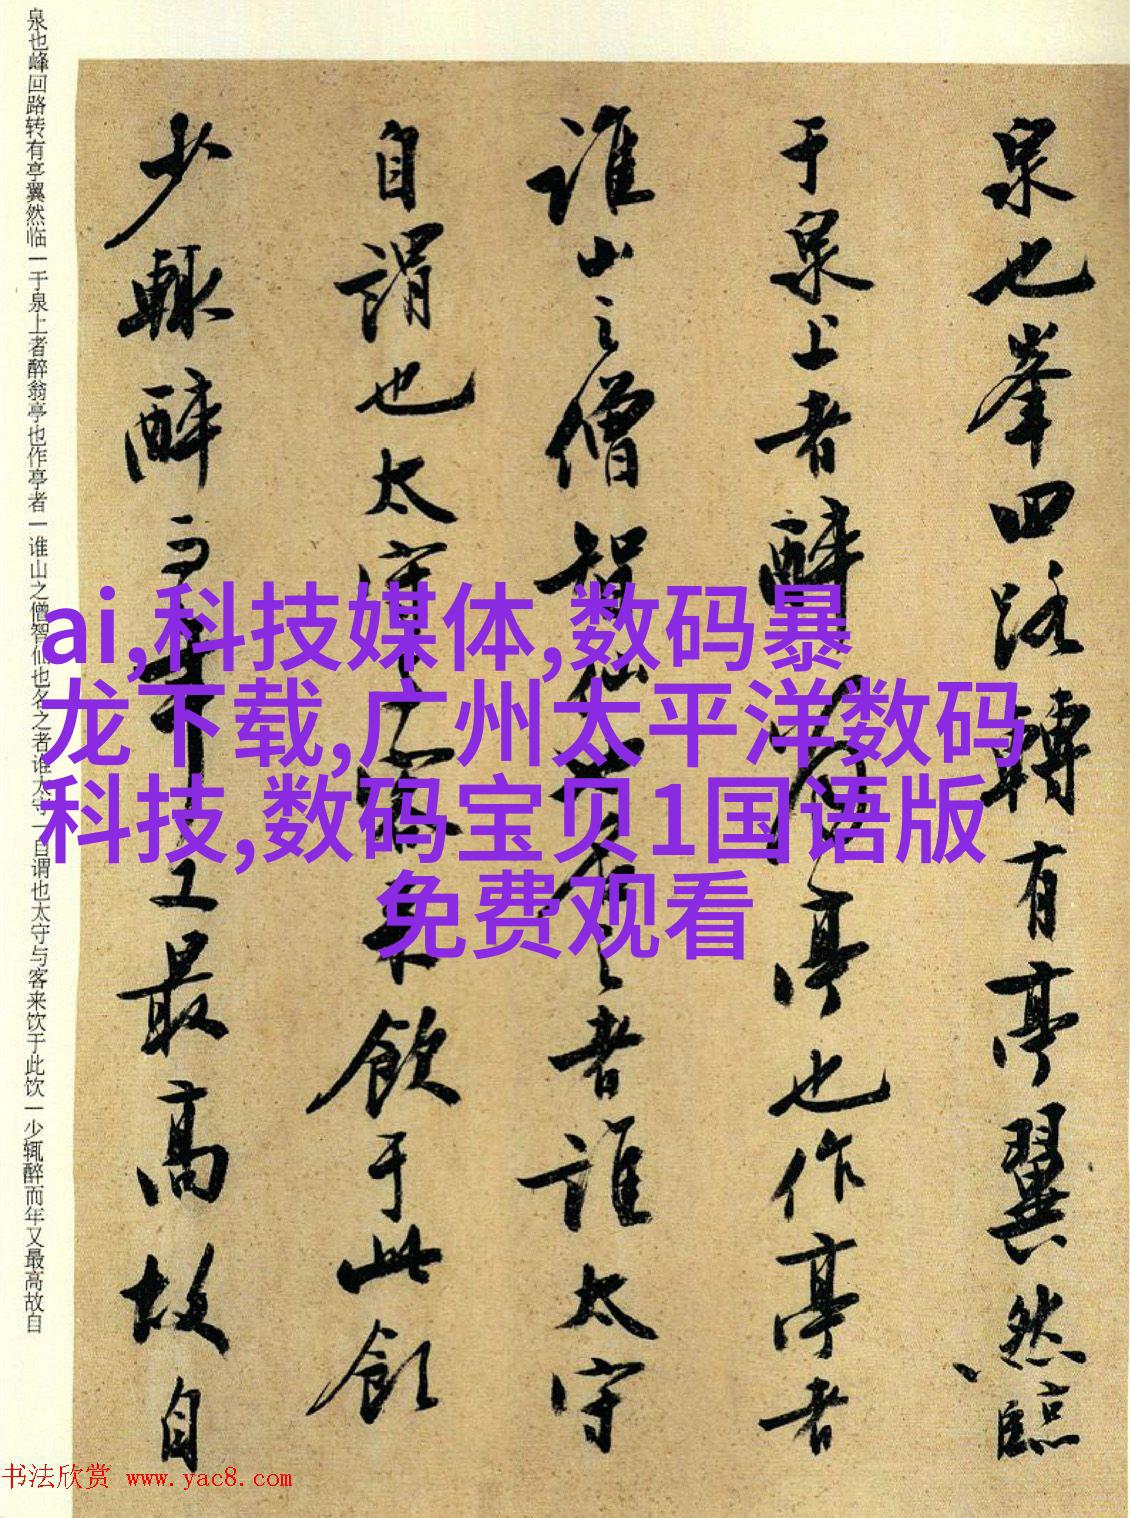 泉也峰回路转有亭翼然临一于泉上者醉翁亭也作亭者一谁山之僧智仙也名之者谁太守一自谓也太守与客来饮于此饮一少辄醉而年又最高故自
泉也峯回路轉有亭翼然臨
于泉上者醉翁亭也作亭者
誰山之僧智仙也名之者誰太守
自謂也太守与客来飲于此飲
少輒醉而年又最高故自
ai,科技媒体,数码暴
龙下载,广州太平洋数码
科技,数码宝贝1国语版
免费观看
书法欣赏 www.yac8.com